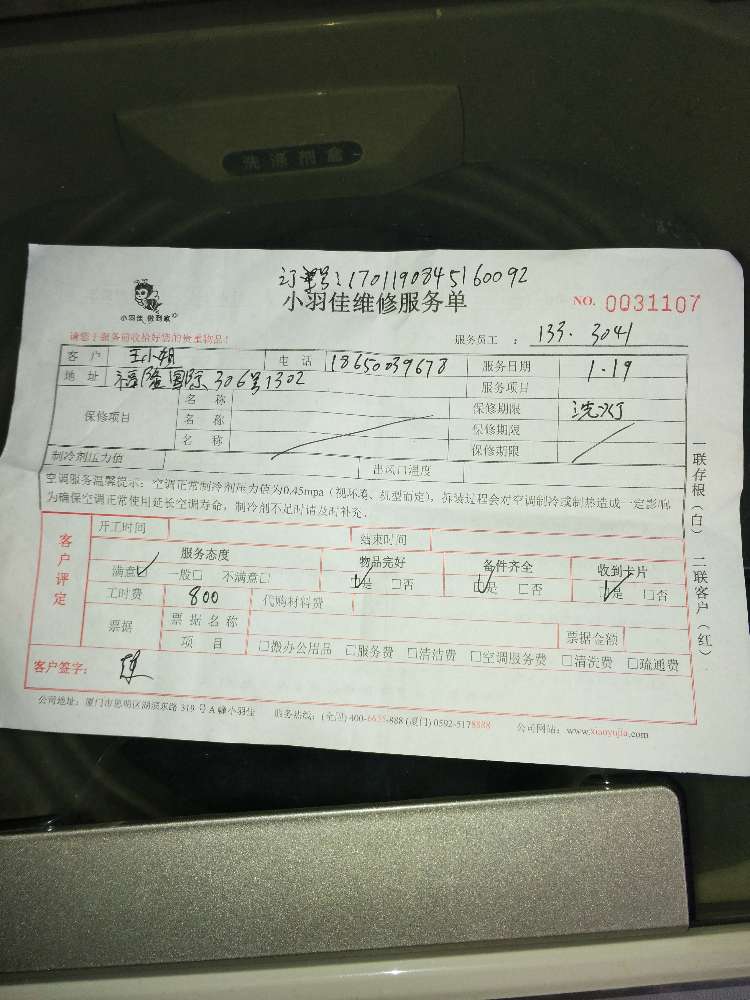 洗涤剂盒
订单号：1701190845160092
小羽佳 做到家
小羽佳维修服务单
NO. 0031107
请您于服务前收拾好您的贵重物品！
服务员工 ： 133. 3041
客 户 王小姐 电 话 18650039678 服务日期 1.19
地 址 福隆国际 306号1302 服务项目
保修项目 名 称 保修期限 洗灯
名 称 保修期限
名 称 保修期限
制冷剂压力值 出风口温度
空调服务温馨提示：空调正常制冷剂压力值为0.45mpa（视环境、机型而定），拆装过程会对空调制冷或制热造成一定影响
为确保空调正常使用延长空调寿命，制冷剂不足时请及时补充．
客户评定
开工时间 结束时间
服务态度 物品完好 备件齐全 收到卡片
满意□ 一般□ 不满意□ □是 □否 □是 □否 □是 □否
工时费 800 代购材料费
票据 票 据 名 称 票据金额
项 目 □搬办公用品 □服务费 □清洁费 □空调服务费 □清洗费 □疏通费
客户签字：
公司地址：厦门市思明区湖滨东路 319 号 A 幢小羽佳 服务热线：(全国) 400-6655-888 (厦门) 0592-5178888 公司网站：www.xiaoyujia.com
一联存根（白） 二联客户（红）